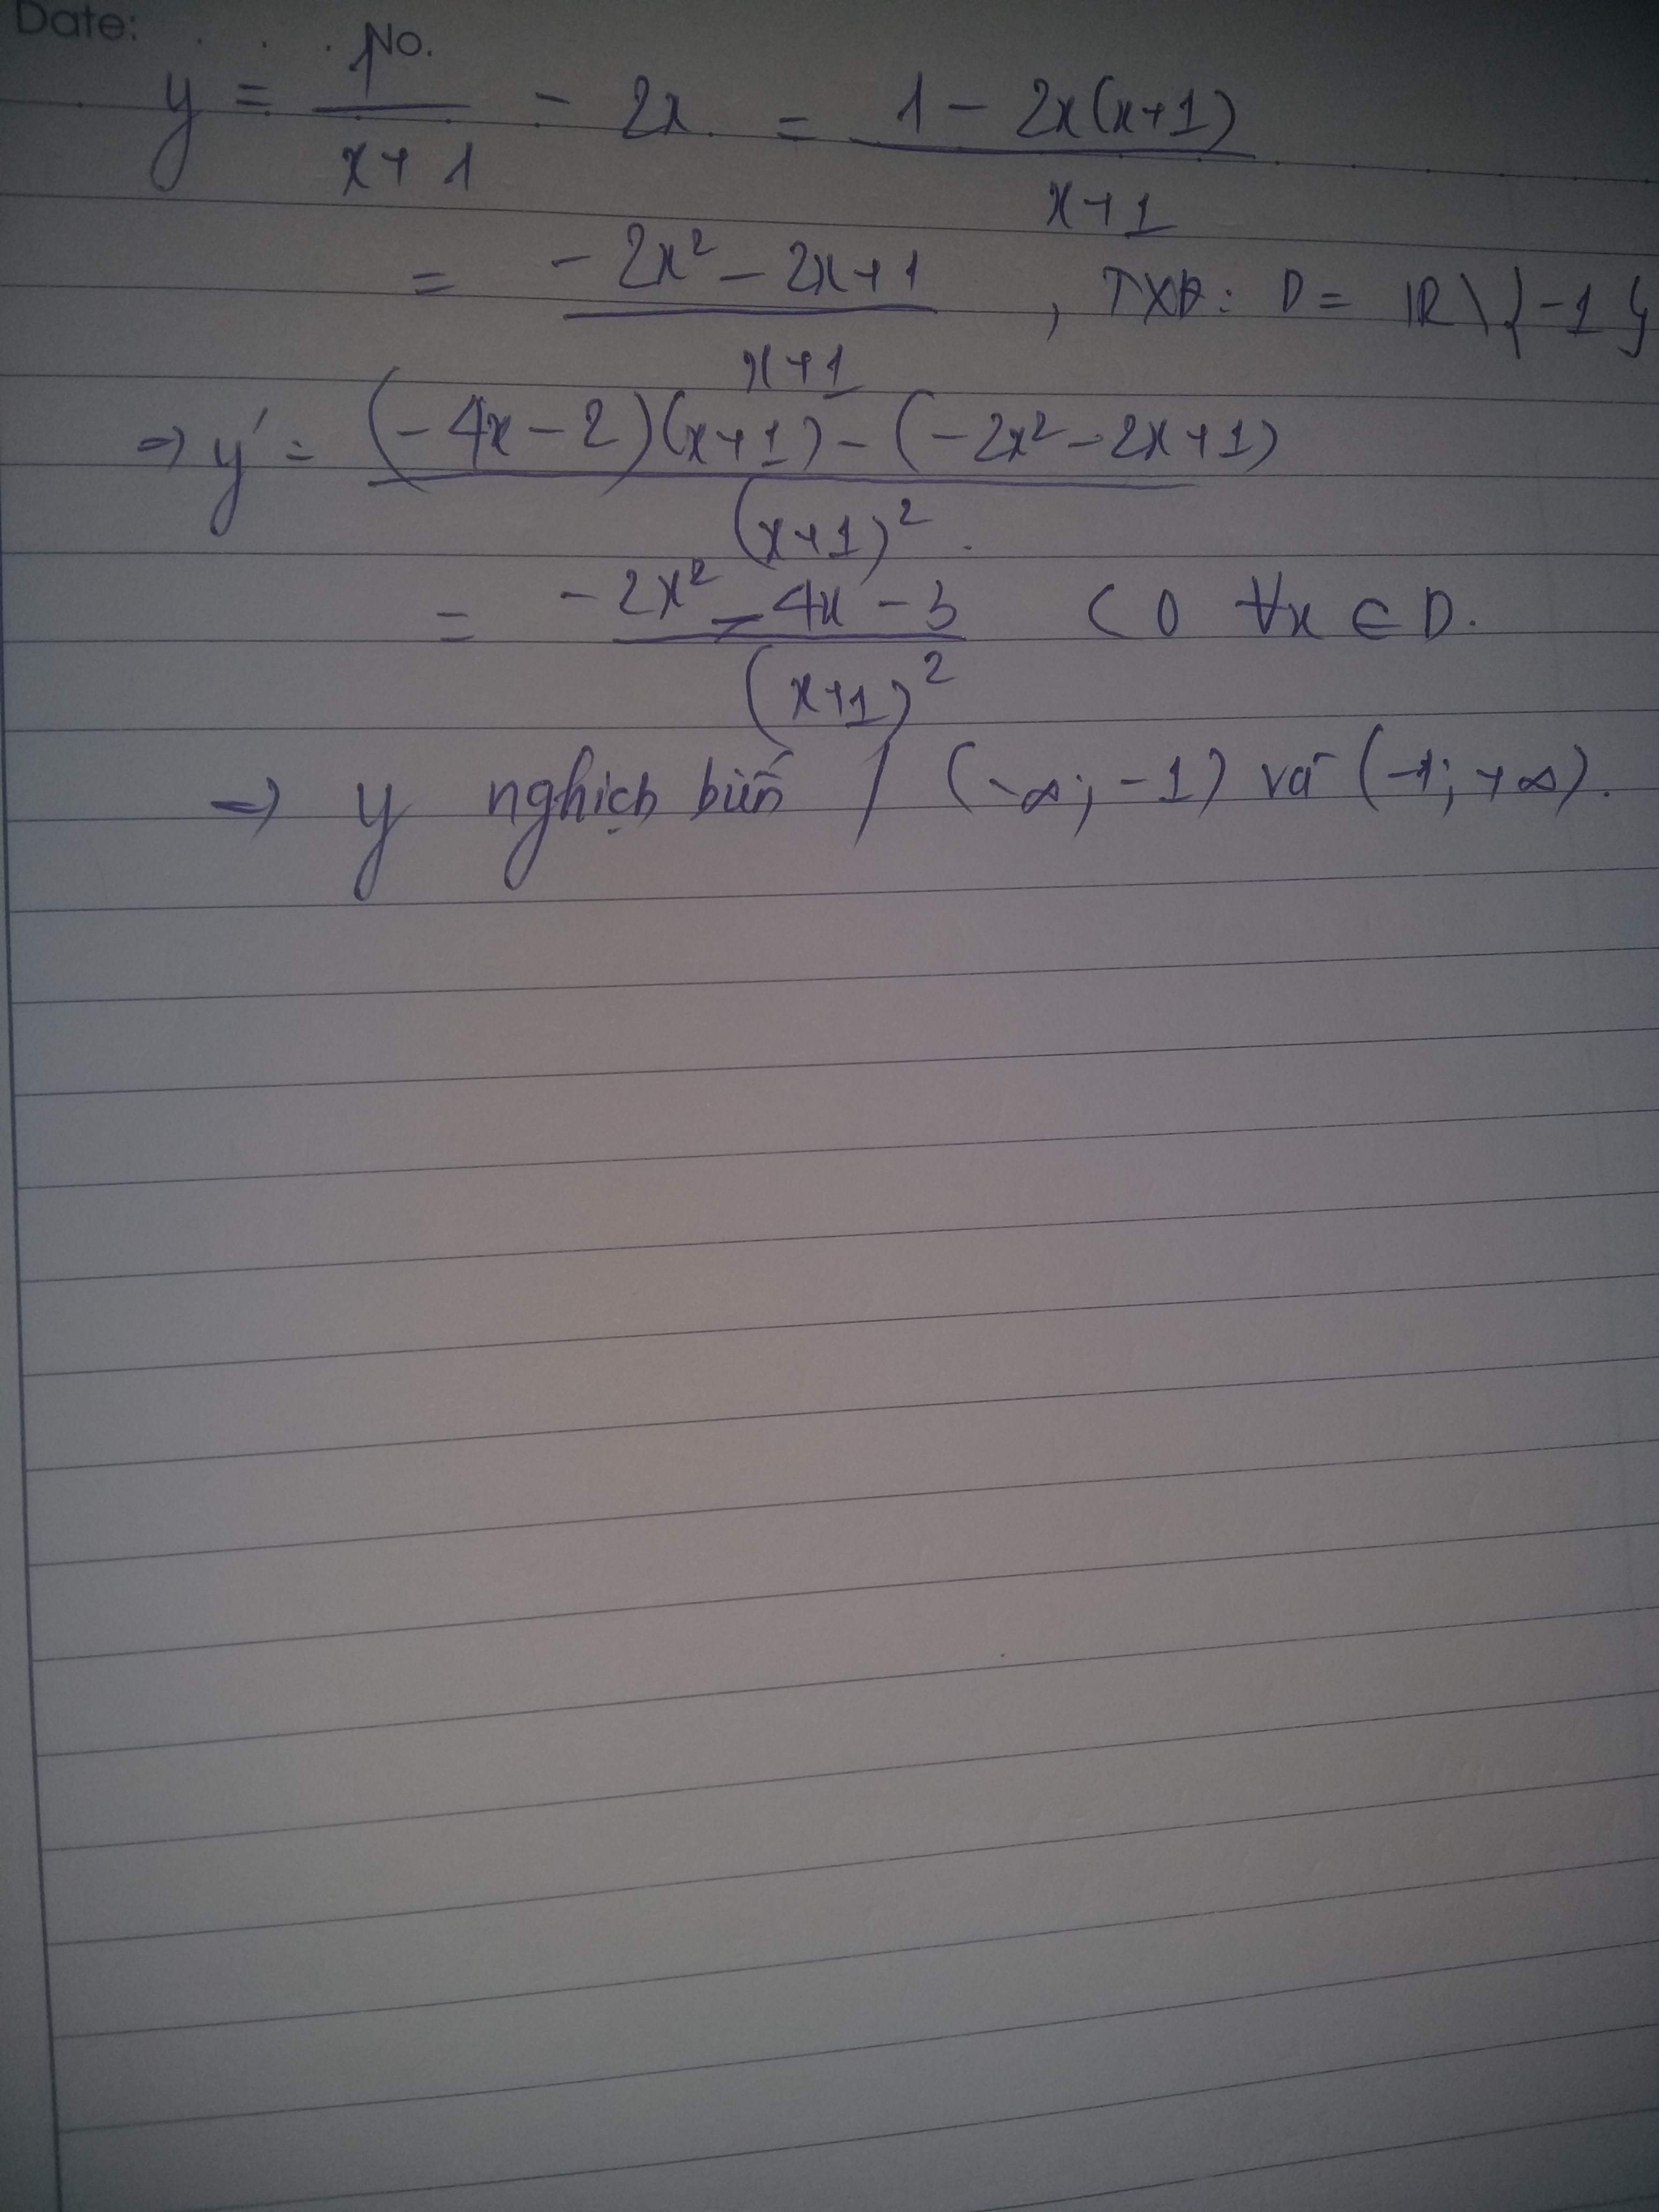 Date: . . . . No.
y = 1/(x+1) - 2x = (1 - 2x(x+1))/(x+1)
= (-2x² - 2x + 1)/(x+1) , TXĐ: D = ℝ\{-1}
⇒ y' = ((-4x-2)(x+1) - (-2x² - 2x + 1))/(x+1)².
= (-2x² - 4x - 3)/(x+1)² < 0 ∀x ∈ D.
⇒ y nghịch biến / (-∞; -1) và (-1; +∞).